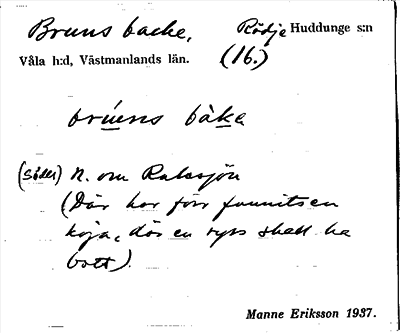 Bruns backe, Rödje Huddunge s:n
Våla h:d, Västmanlands län. (16.)
brúns bàka
(Säll) N. om Ralsjön
(Där har förr funnits en
koja, där en ryss skall ha
bott).
Manne Eriksson 1937.